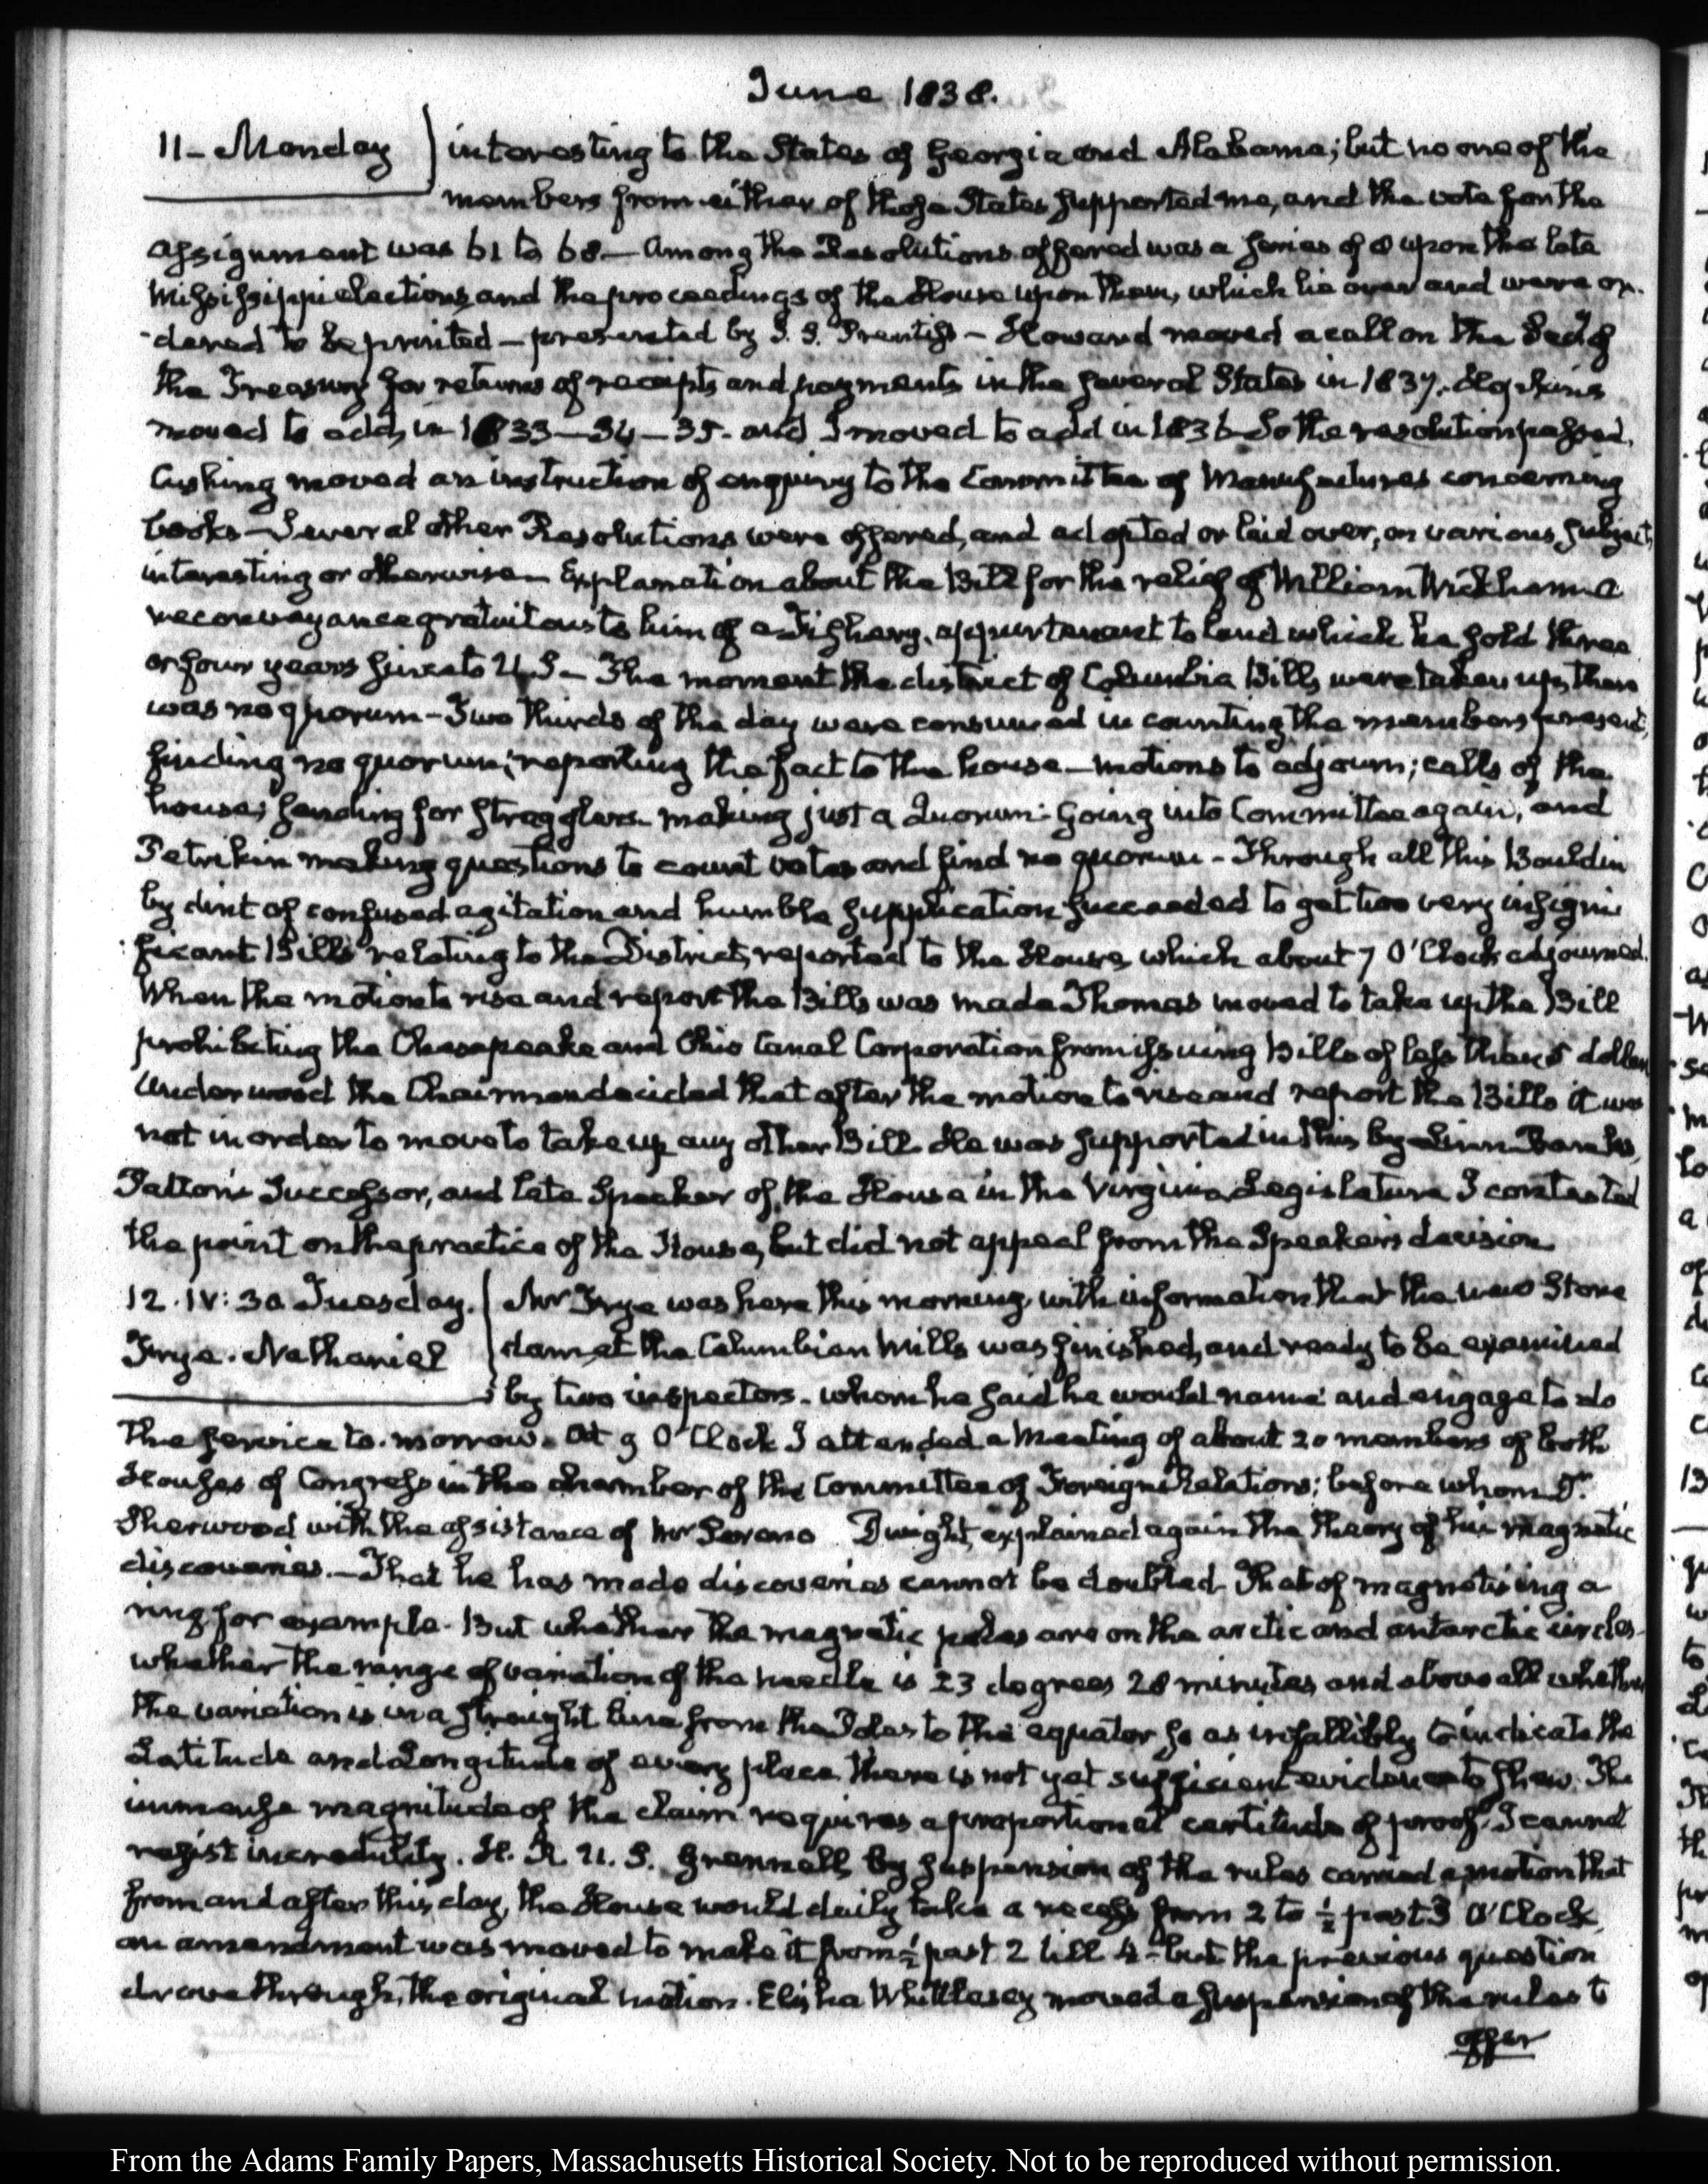 June 1838.
11- Monday interesting to the States of Georgia and Alabama; but no one of the
members from either of those States supported me, and the vote for the
assignment was 61 to 68 — Among the Resolutions offered was a series of 8 upon the late
Mississippi elections, and the proceedings of the House upon them, which lie over and were or-
-dered to be printed — presented by S. S. Prentiss — Howard moved a call on the Secy of
the Treasury for returns of receipts and payments in the several States in 1837. Hopkins
moved to add, in 1833—34—35. and I moved to add in 1836 So the resolution passed.
Cushing moved an instruction of enquiry to the Committee of Manufactures concerning
books — Several other Resolutions were offered, and adopted or laid over, on various subjects,
interesting or otherwise — Explanation about the Bill for the relief of William Wickham — a
reconveyance gratuitous to him of a Fishery, appurtenant to land which he sold three
or four years since to U.S — The moment the district of Columbia Bills were taken up, there
was no quorum — Two thirds of the day were consumed in counting the members present;
finding no quorum; reporting the fact to the house — motions to adjourn; calls of the
house; sending for stragglers — making just a Quorum — Going into Committee again, and
Petrikin making questions to count votes and find no quorum — Through all this Bouldin
by dint of confused agitation and humble supplication succeeded to get two very insigni-
ficant Bills relating to the District, reported to the House, which about 7 O'Clock adjourned.
When the motion to rise and report the Bills was made Thomas moved to take up the Bill
prohibiting the Chesapeake and Ohio Canal Corporation from issuing Bills of less than 5 dollars
Underwood the Chairman decided that after the motion to rise and report the Bills it was
not in order to move to take up any other Bill. He was supported in this by Linn Banks,
Patton's Successor, and late Speaker of the House in the Virginia Legislature I contested
the point on the practice of the House, but did not appeal from the Speaker's decision.
12. IV: 30 Tuesday. Mr Frye was here this morning, with information that the new Stone
Frye. Nathaniel dam, at the Columbian Mills was finished, and ready to be examined
by two inspectors — whom he said he would name and engage to do
the service to-morrow. At 9 O'Clock I attended a Meeting of about 20 members of both
Houses of Congress in the chamber of the Committee of Foreign Relations; before whom Dr.
Sherwood with the assistance of Mr Sereno Dwight, explained again the theory of his magnetic
discoveries. — That he has made discoveries cannot be doubted. That of magnetising a
ring for example. But whether the magnetic poles are on the arctic and antarctic circles —
whether the range of variation of the needle is 23 degrees 28 minutes and above all whether
the variation is in a straight line from the Poles to the equator so as infallibly to indicate the
Latitude and Longitude of every place there is not yet sufficient evidence to shew. The
immense magnitude of the claim requires a proportional certitude of proof. I cannot
resist incredulity. H. R. U. S. Grennell, by suspension of the rules carried a motion that
from and after this day, the House would daily take a recess from 2 to ½ past 3 O'Clock.
an amendment was moved to make it from ½ past 2 till 4 — but the previous question
drove through, the original motion. Elisha Whittlesey moved a suspension of the rules to
offer
From the Adams Family Papers, Massachusetts Historical Society. Not to be reproduced without permission.